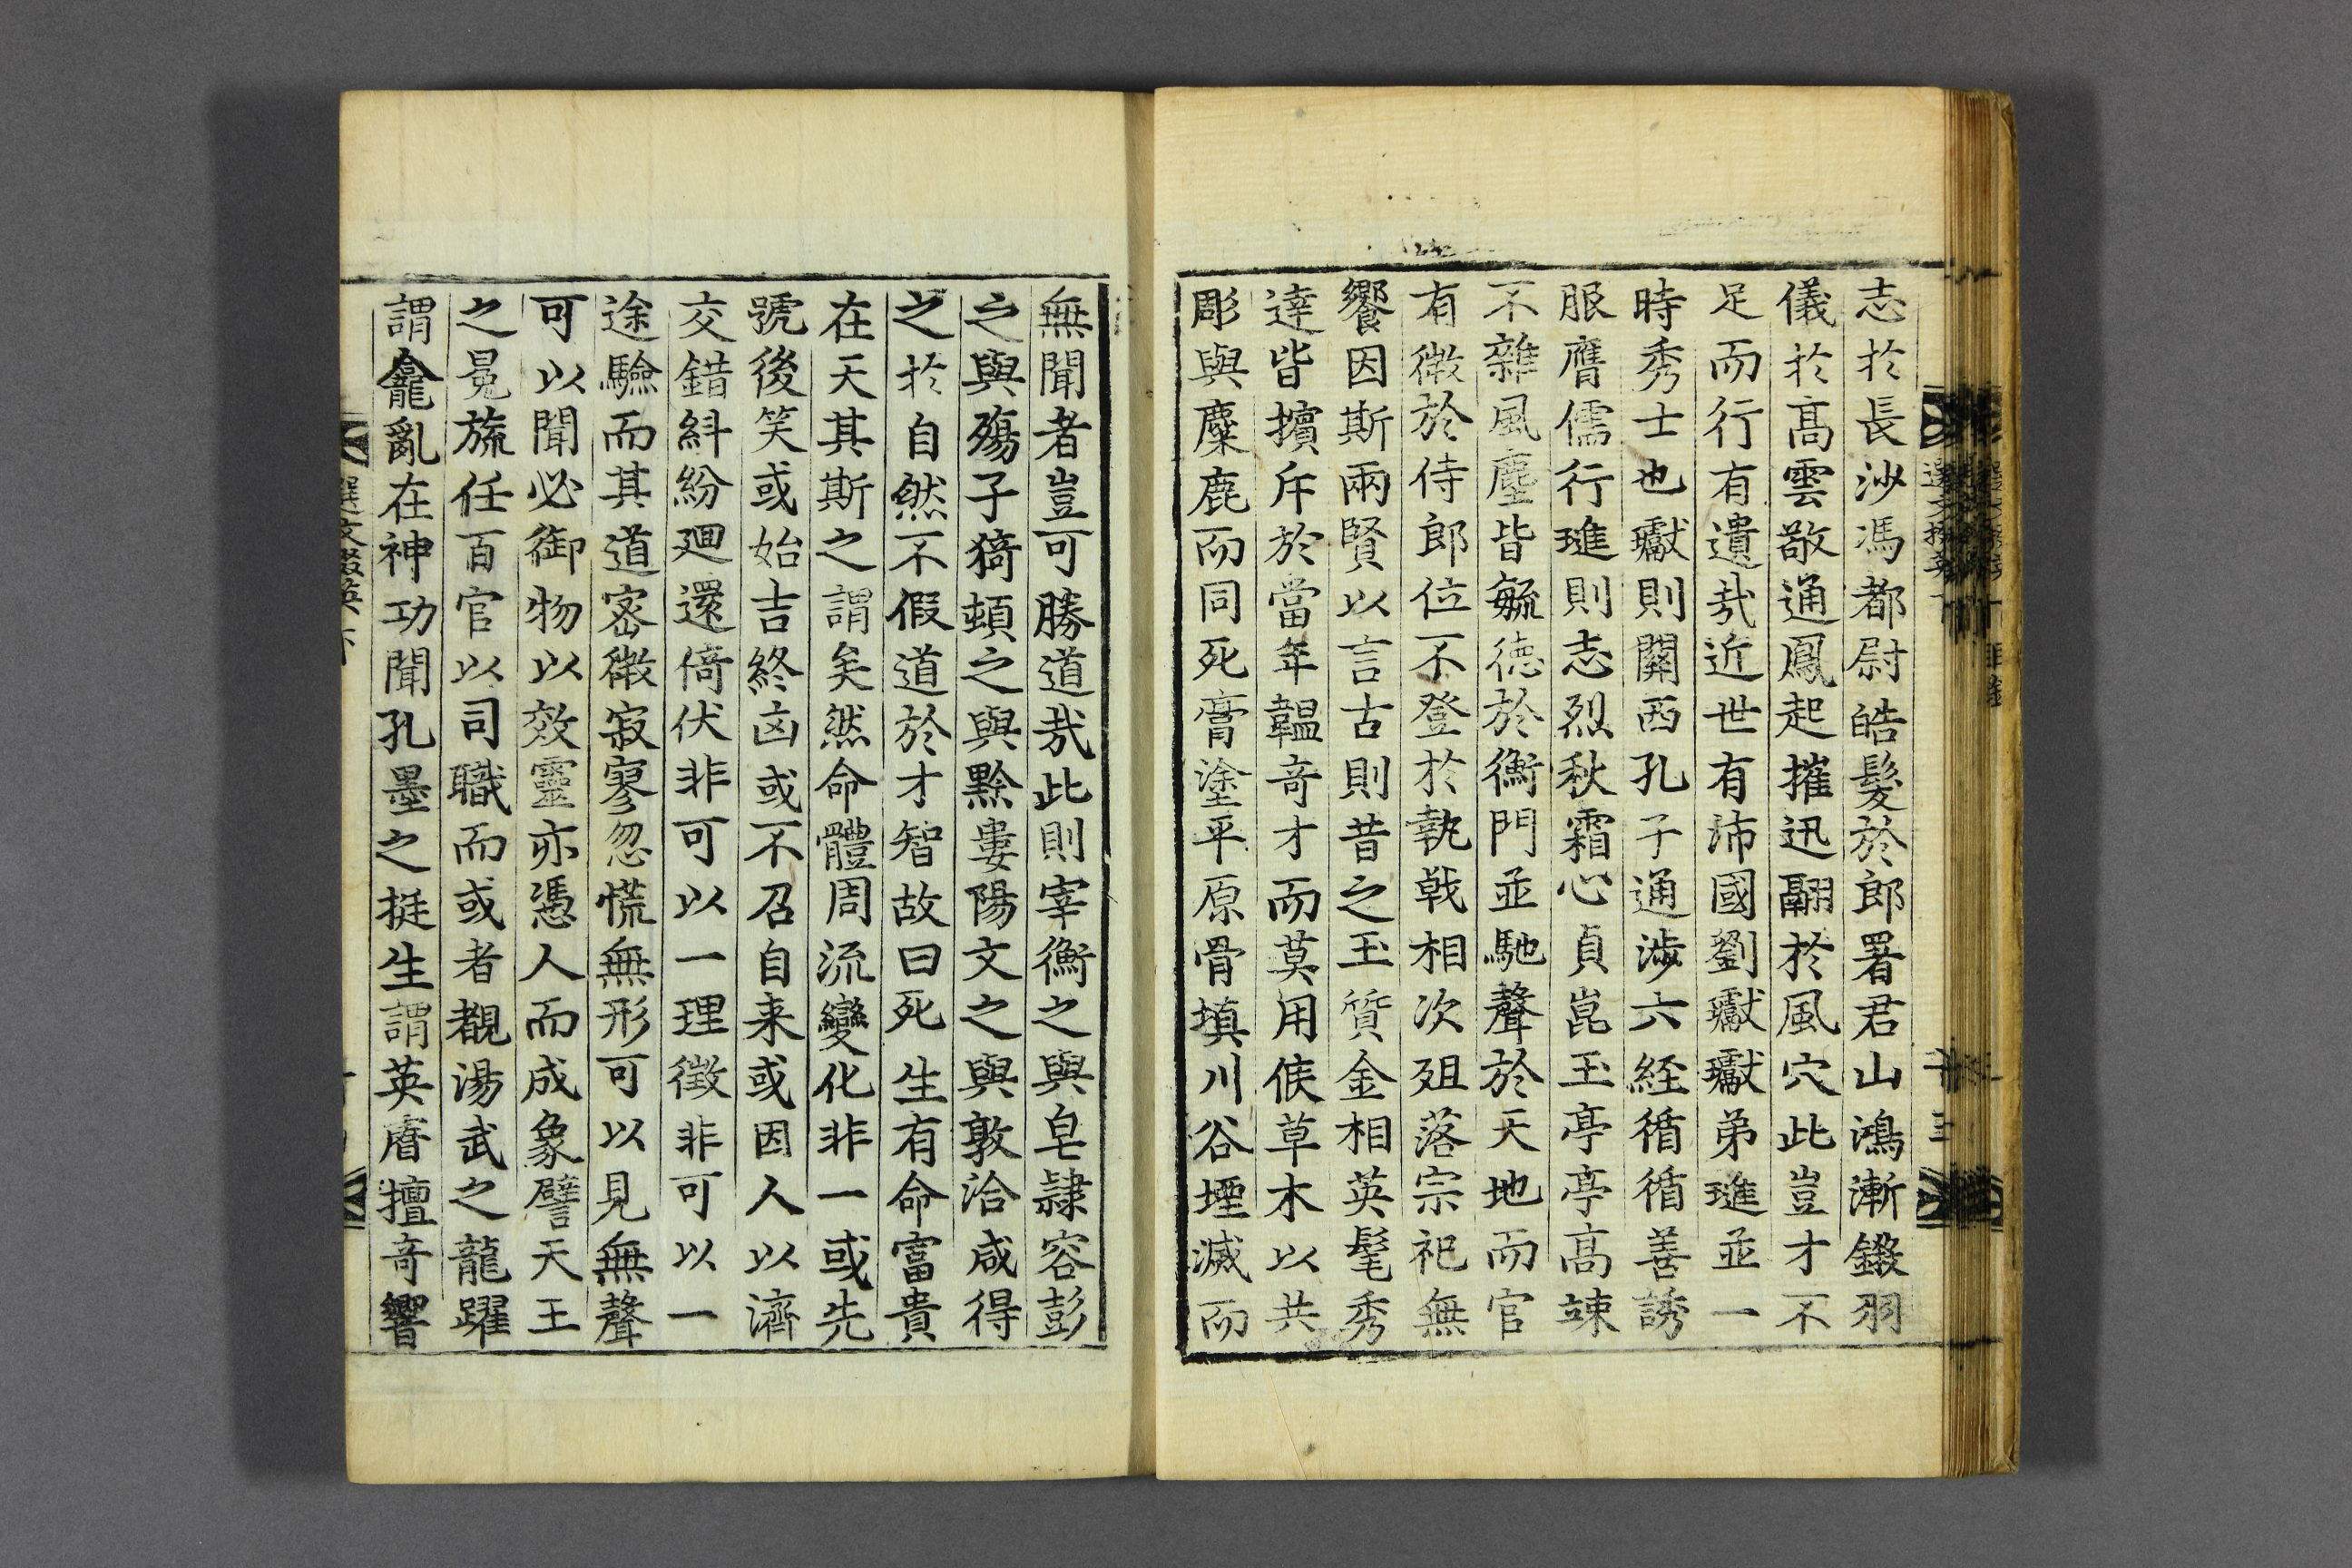 志於長沙馮都尉皓髮於郎署君山鴻漸鎩羽
儀於高雲敬通鳳起摧迅翮於風穴此豈才不
足而行有遺哉近世有沛國劉瓛瓛弟璡並一
時秀士也瓛則關西孔子通涉六經循循善誘
服膺儒行璡則志烈秋霜心貞崑玉亭亭高竦
不雜風塵皆毓德於衡門並馳聲於天地而官
有微於侍郎位不登於執戟相次殂落宗祀無
饗因斯兩賢以言古則昔之玉質金相英髦秀
達皆擯斥於當年韞奇才而莫用侯草木以共
彫與麋鹿而同死膏塗平原骨填川谷堙滅而
無聞者豈可勝道哉此則宰衡之與皂隷容彭
之與殤子猗頓之與黔婁陽文之與敦洽咸得
之於自然不假道於才智故曰死生有命富貴
在天其斯之謂矣然命體周流變化非一或先
號後笑或始吉終凶或不召自来或因人以濟
交錯糾紛迴還倚伏非可以一理徵非可以一
途驗而其道密微寂寥忽慌無形可以見無聲
可以聞必御物以效靈亦憑人而成象譬天王
之冕旒任百官以司職而或者覩湯武之龍躍
謂龕亂在神功聞孔墨之挺生謂英睿擅奇響